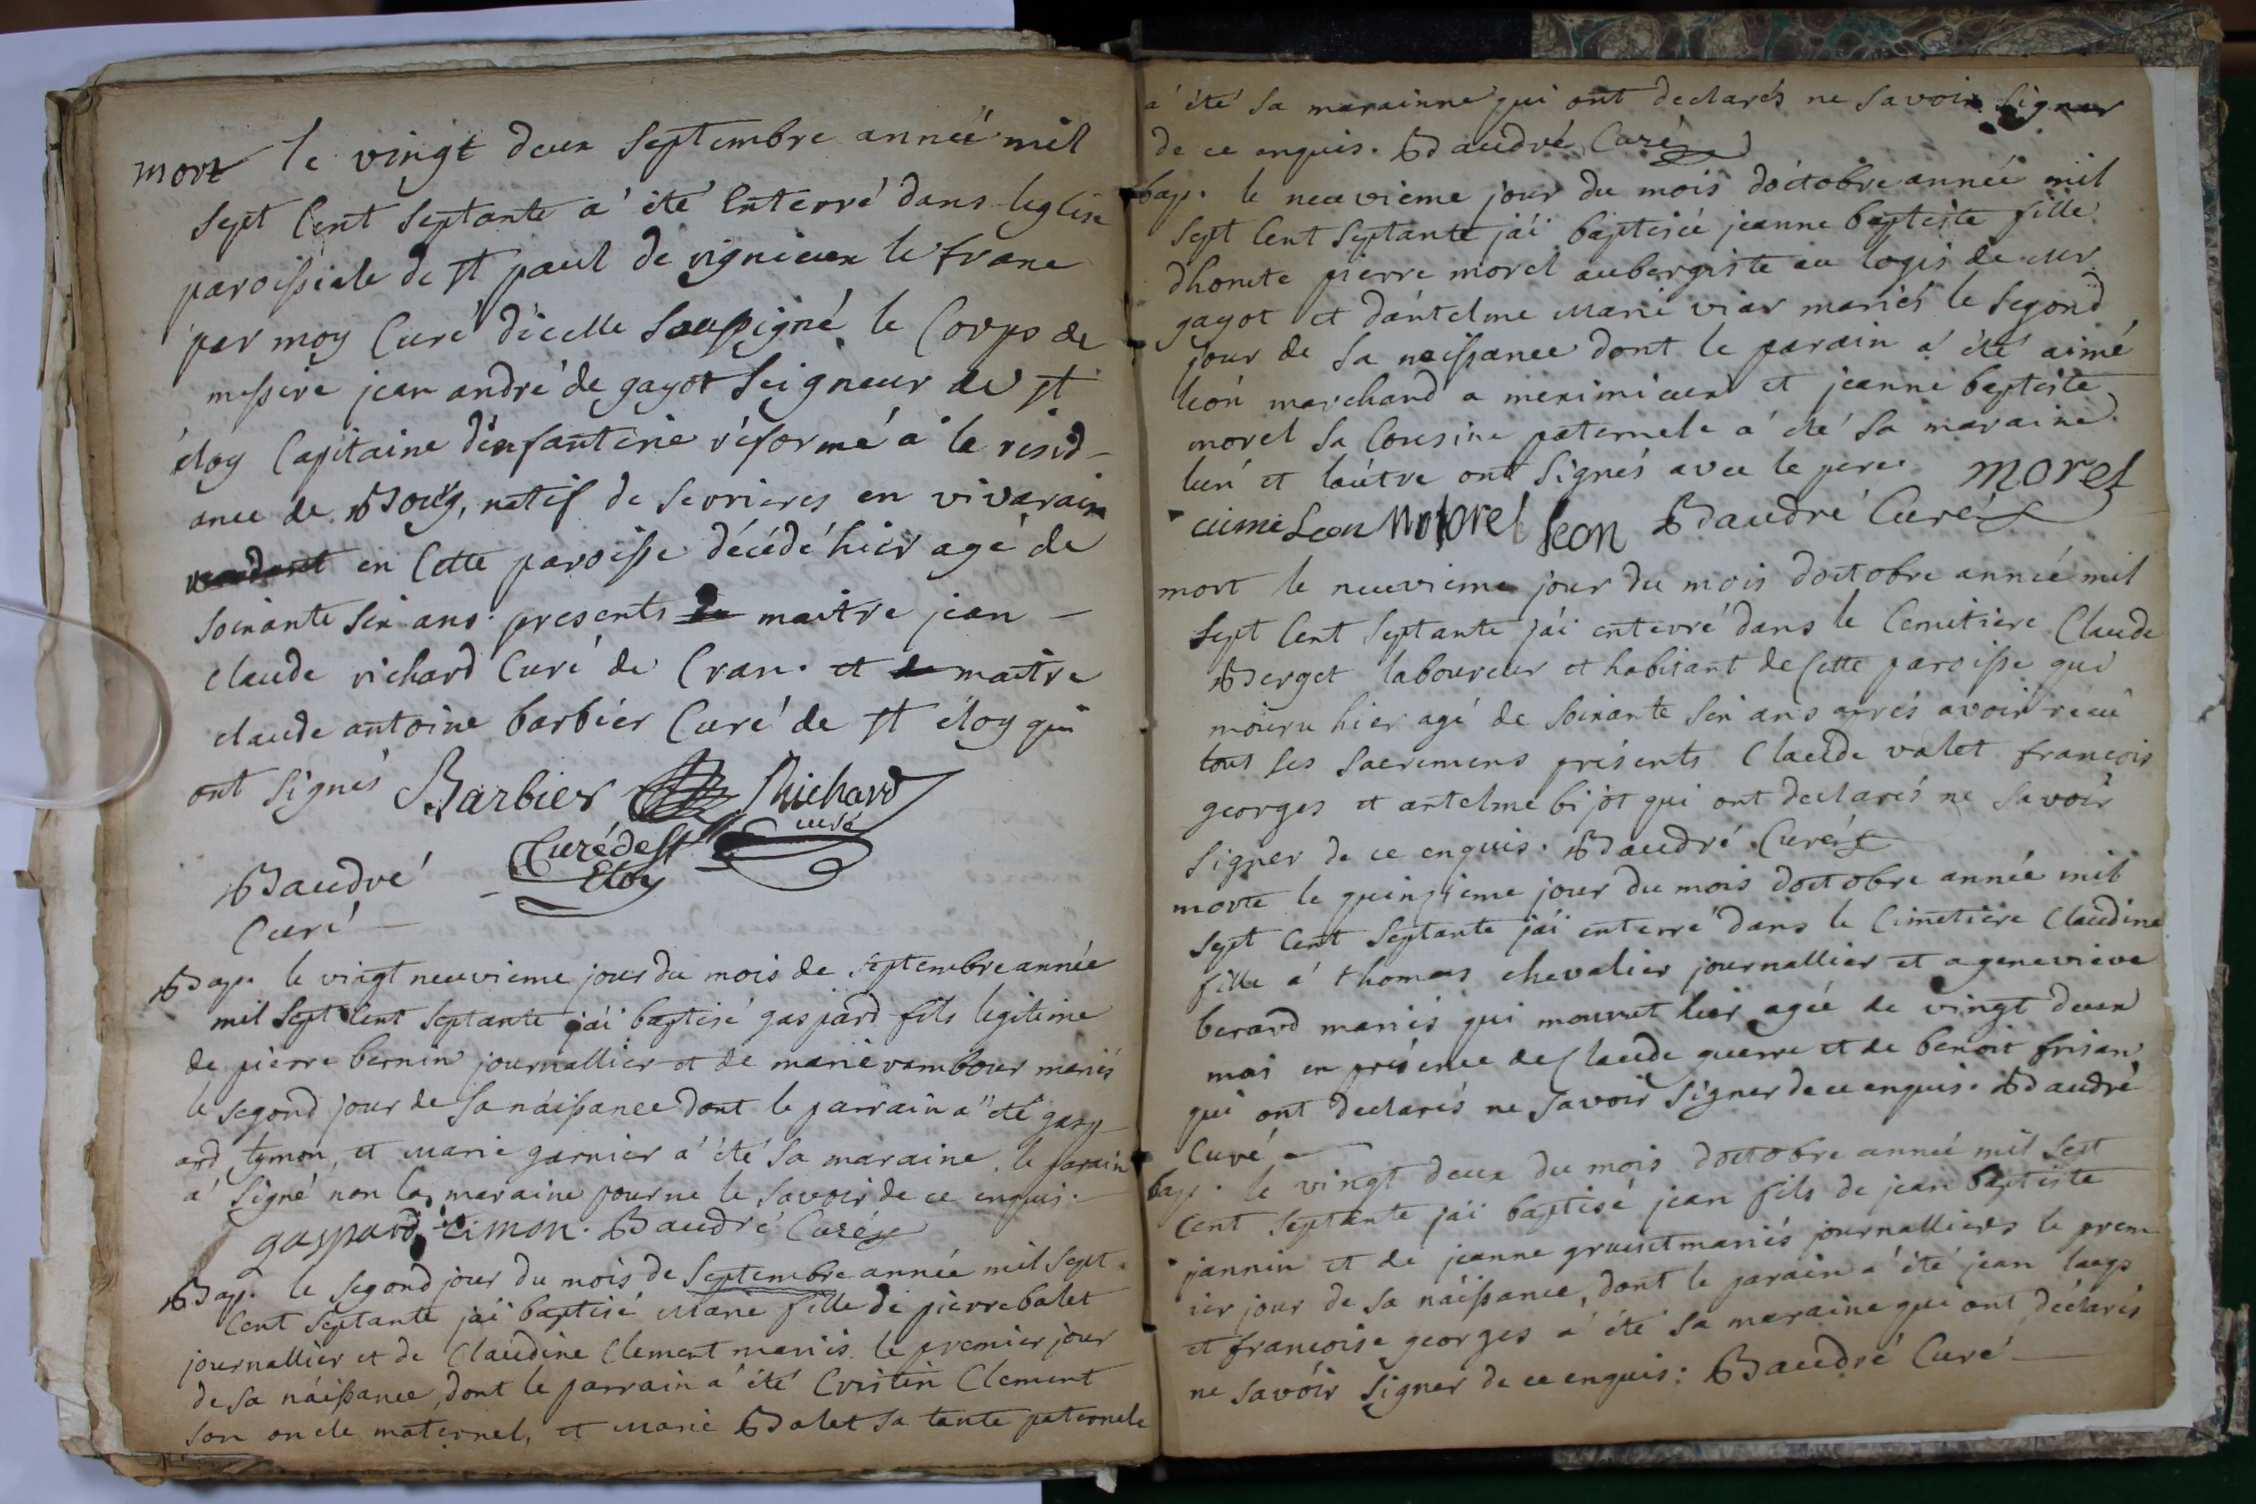 mort le vingt deux Septembre anneé mil
Sept Cent Septante a été Enterré dans leglise
paroissiale de St paul de rignieux le franc
par moy Curé d'icelle Soussigné le Corps de
messire jean andré de gayot Seigneur de St
éloy Capitaine d'enfanterie réformé a la resid-
ance de Bourg, natif de Serrieres en vivarain
en Cette paroisse décédé hier agé de
soixante six ans. presents maitre jean -
claude richard Curé de Cran. et maitre
claude antoine barbier Curé de St éloy qui
ont Signés Barbier Richard
curé
Curé de St
Eloy
Baudré
Curé
Bap. le vingt neuvieme jour du mois de Septembre année
mil Sept Cent Septante j'ai baptisé gaspard fils legitime
de pierre bernin journallier et de marie rambour mariés
le segond jour de Sa náissance dont le parrain a été gasp-
ard tymon, et Marie garnier a été Sa maraine, le parain
a Signé non la maraine pour ne le Savoir de ce enquis.
gaspard timon. Baudré Curé
Bap. le Segond jour du mois de Septembre année mil Sept
Cent Septante j'ai baptisé Marie fille de pierre balet
journallier et de Claudine Clement mariés le premier jour
de Sa náissance, dont le parrain a été Cristin Clement
son oncle maternel, et Marie Balet Sa tante paternele
a été Sa marainne qui ont declarés ne Savoir Signer
de ce enquis. Baudré Curé
bap. le neuvieme jour du mois doctobre anneé mil
Sept Cent Septante j'ai baptiseé jeanne baptiste fille
dhonete pierre morel aubergiste au logis de Mr
gayot et d'antelme Marie viar mariés le Segond
jour de Sa naissance dont le parain a été aimé
león marchand a meximieux et jeanne baptiste
morel Sa Cousine paternele a été Sa maraine.
lun et láutre ont Signés avec le pere. morel
aimé Leon Morel leon Baudré Curé
mort le neuvieme jour du mois doctobre anneé mil
Sept Cent Septante j'ai enterré dans le Cemitiere Claude
Berget laboureur et habitant de Cette paroisse qui
mouru hier agé de soixante six ans aprés avoir recu
tous ses Sacremens présents Claude valet francois
georges et antelme bijot qui ont declarés ne Savoir
Signer de ce enquis. Baudré Curé
morte le quinzieme jour du mois doctobre année mil
Sept Cent Septante j'ai enterré dans le Cimetiere Claudine
fille a thomas chevalier journallier et a genevieve
berard mariés qui mourut hier ageé de vingt deux
mois en présence de Claude guerre et de benoit frisan
qui ont declarés ne Savoir Signer de ce enquis. Baudré
Curé
bap. le vingt deux du mois doctobre anneé mil Sept
Cent Septante j'ai baptisé jean fils de jean baptiste
jannin et de jeanne mariés journalliers le prem-
ier jour de Sa náissance, dont le parain a été jean
et francoise georges a été Sa maraine qui ont déclarés
ne Savoir Signer de ce enquis: Baudré Curé